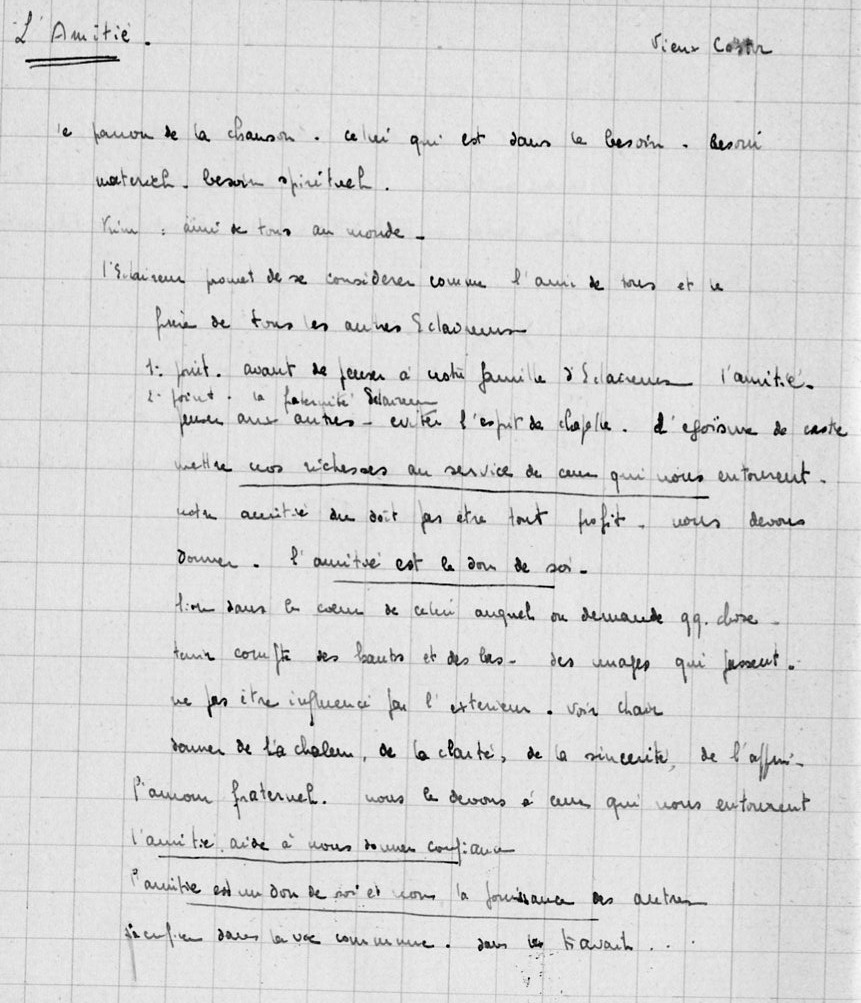 L'Amitié.
Vieux Castor
le de la chanson. celui qui est dans le besoin. besoin
materiel. besoin spirituel.
: ami de tous au monde -
l'Eclaireur promet de se considerer comme l'ami de tous et le
frère de tous les autres Eclaireurs
1: point. avant de penser à notre famille d'Eclaireurs l'amitié.
2- point. la fraternité Eclaireurs
penser aux autres - eviter l'esprit de chapelle. d'egoïsme de caste
mettre nos richesses au service de ceux qui nous entourent.
notre amitié ne doit pas être tout profit. nous devons
donner. l'amitié est le don de soi.
lire dans le coeur de celui auquel on demande qq. chose -
tenir compte des hauts et des bas - des nuages qui passent.
ne pas être influencé par l'exterieur. voir clair
donner de la chaleur, de la clarté, de la sincerité, de l'appui -
l'amour fraternel. nous le devons à ceux qui nous entourent
l'amitié aide à nous donner confiance
l'amitié est un don de soi et non la jouissance des autres
dans la vie commune. dans les travail...